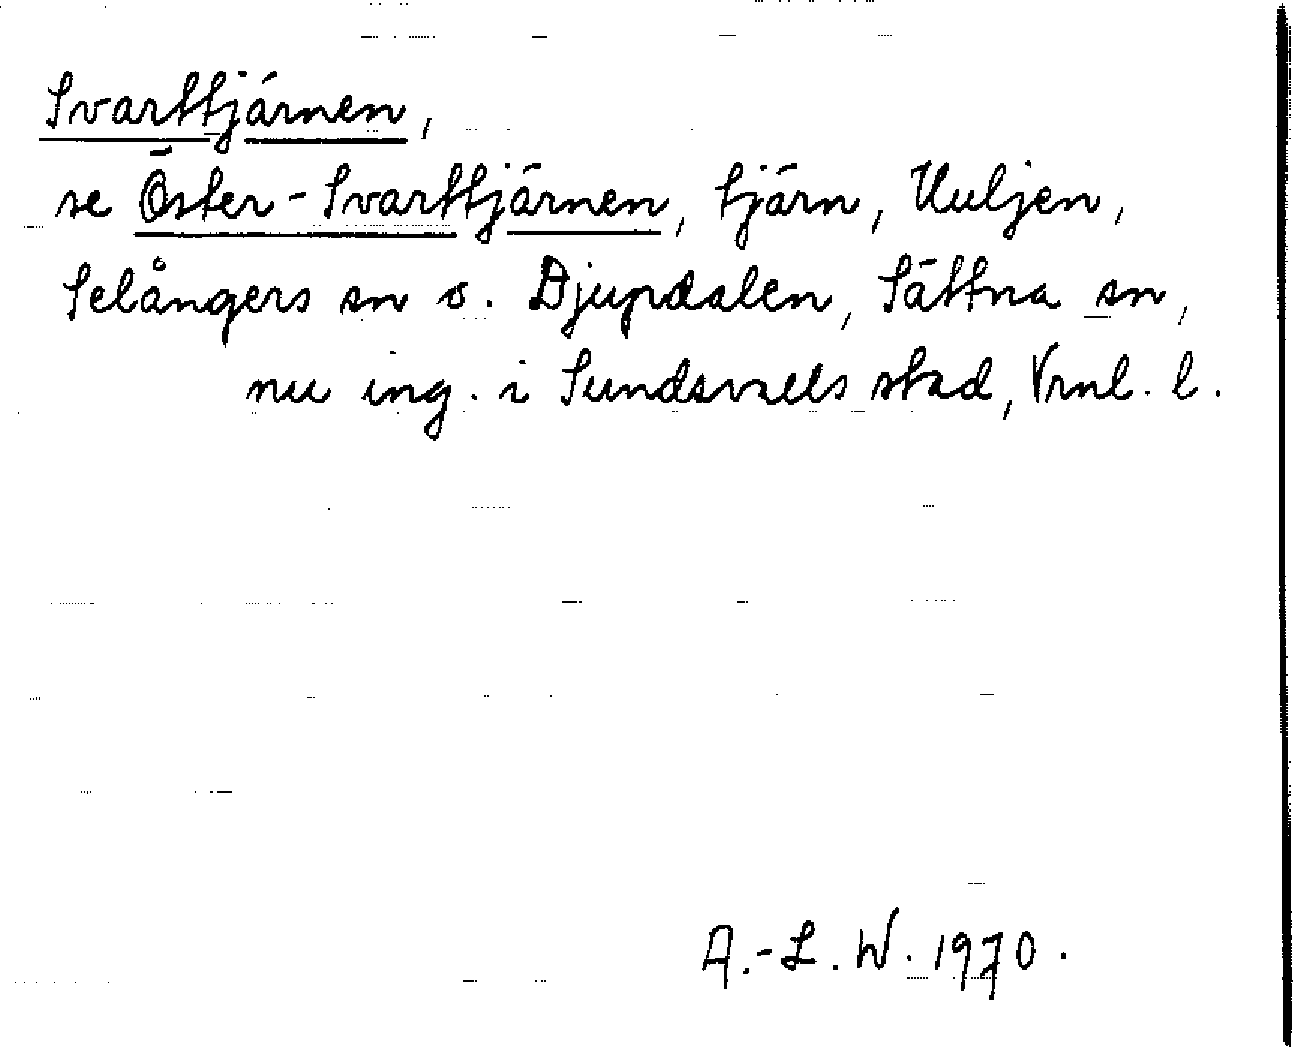 Svarttjärnen,
se Öster-Svarttjärnen, tjärn, Huljen,
Selångers sn o. Djupdalen, Sättna sn,
nu ing. i Sundsvalls stad, Vrnl. l.
A.-L. W. 1970.